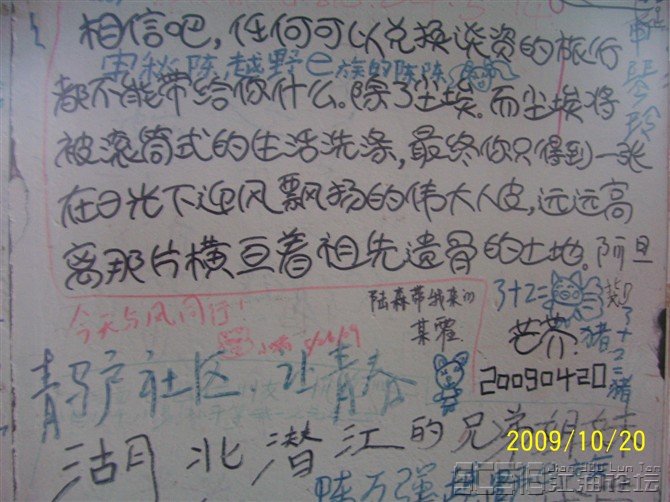 相信吧，任何可以兑换谈资的旅行
宙秋陈越野e族的陈陈
都不能带给你什么。除了尘埃。而尘埃将
被滚筒式的生活洗涤，最终你只得到一张
在日光下迎风飘扬的伟大人皮，远远高
离那片横亘着祖先遗骨的土地。阿旦
今天与风同行！
陆森带线来的
某霍
3+2=
猪
3+2=猪
芒芥
20090420
青驴社区 让青春
湖北潜江的兄弟
2009/10/20